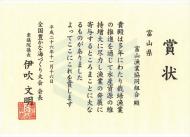 賞状
富山県
富山漁業協同組合 殿
貴殿は多年にわたり栽培漁業
の推進を通じて水産資源の維
持増大に尽力し漁業の発展に
寄与するところまことに大な
るものがあります
よってここにこれを賞します
平成二十六年十一月十六日
全国豊かな海づくり大会 会長
衆議院議長 伊吹文明